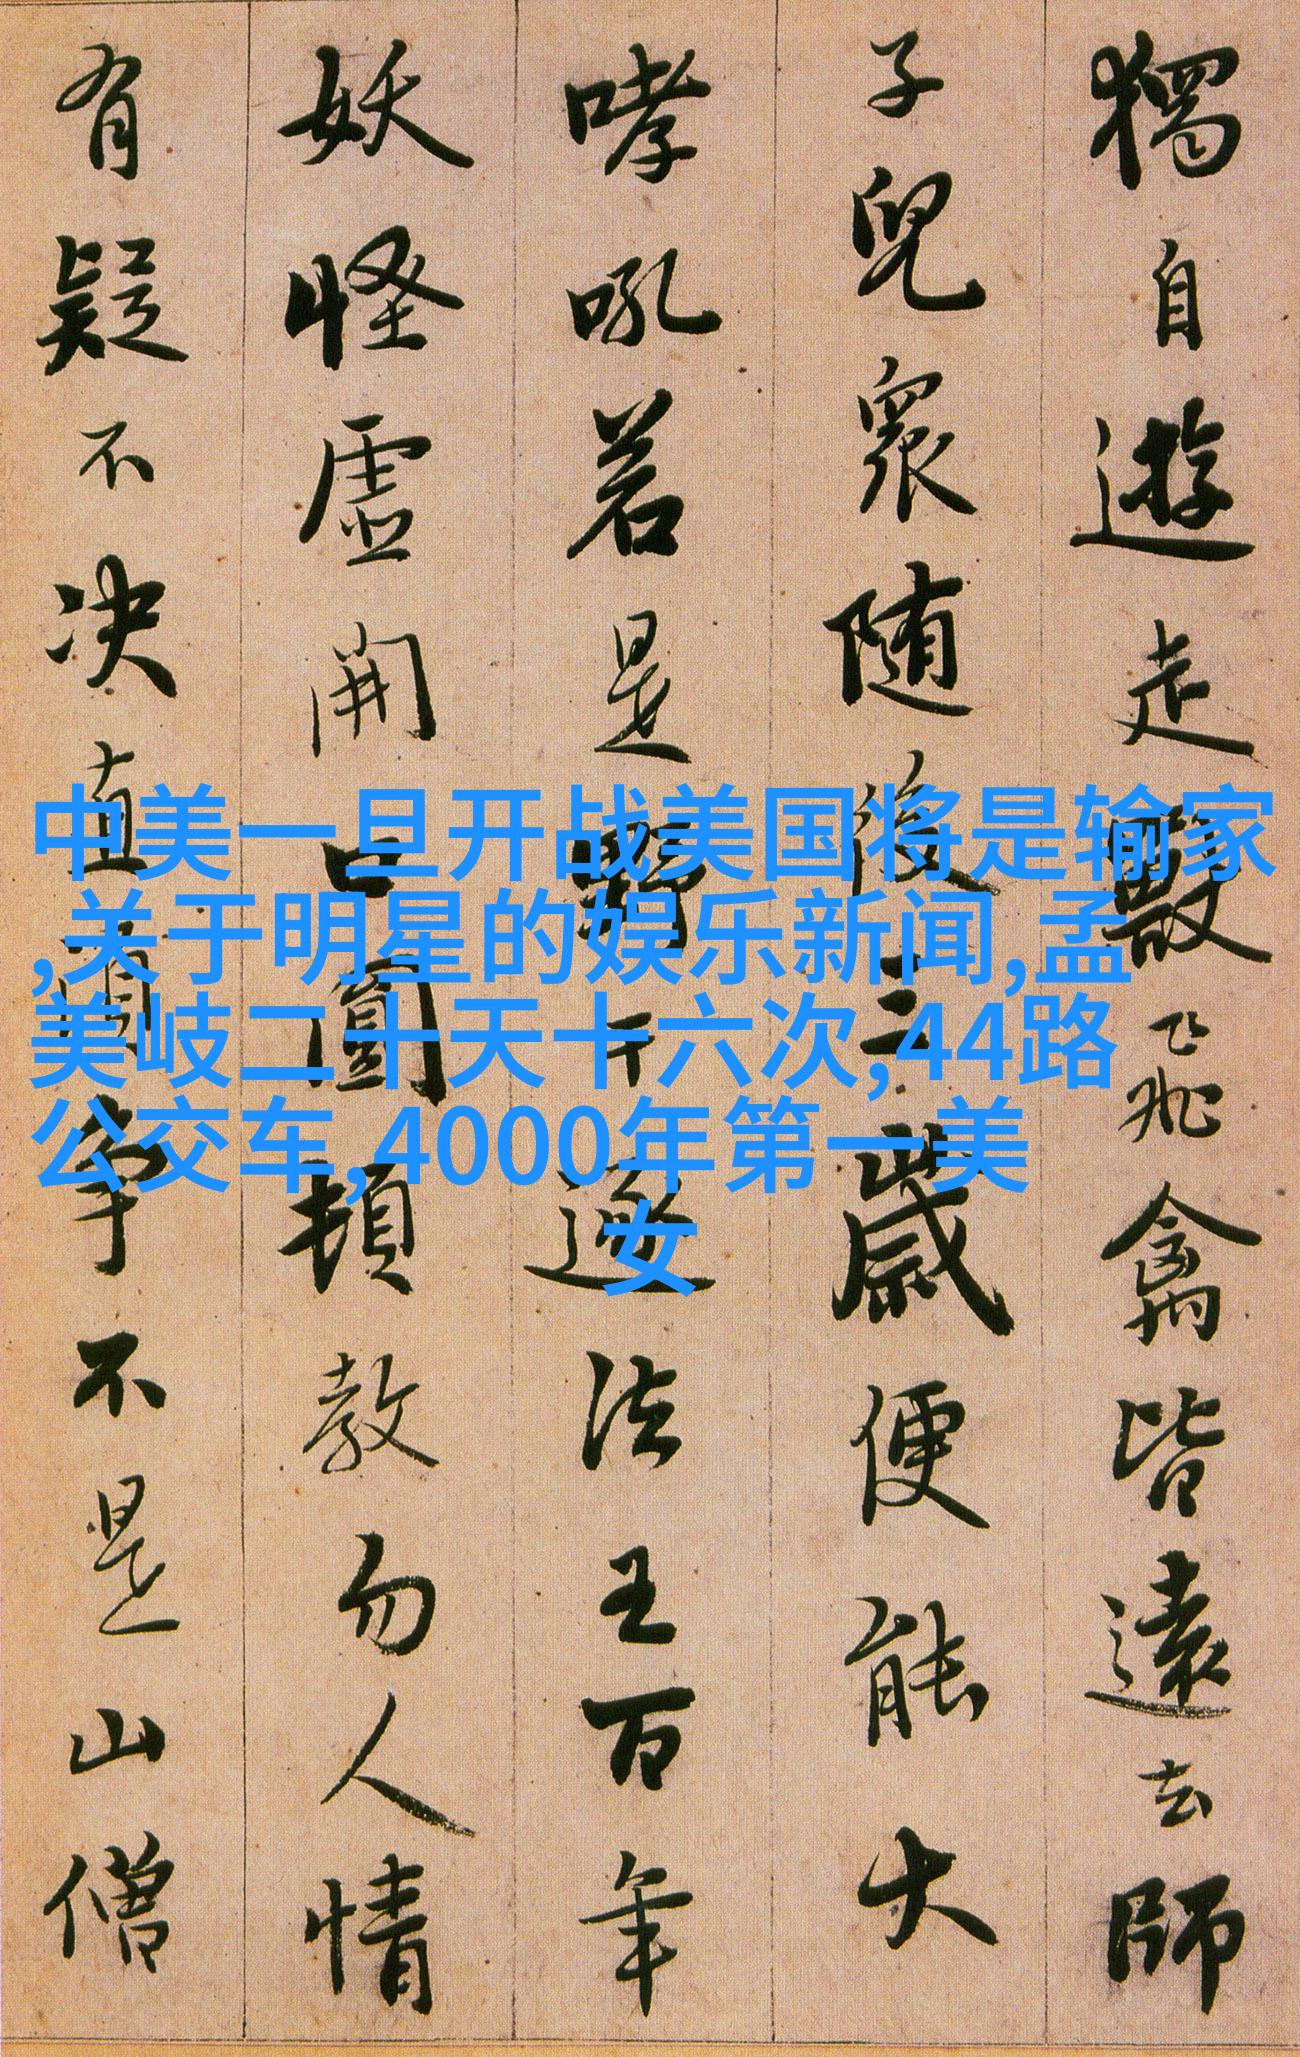 獨自遊走獸飛禽皆遠去師
子兒衆随後三歲便能大
哮吼若是野干逐法王百年
妖怪虛開口圓頓教勿人情
有疑不决直争不是山僧
中美一旦开战美国将是输家
,关于明星的娱乐新闻,孟
美岐二十天十六次,44路
公交车,4000年第一美
女